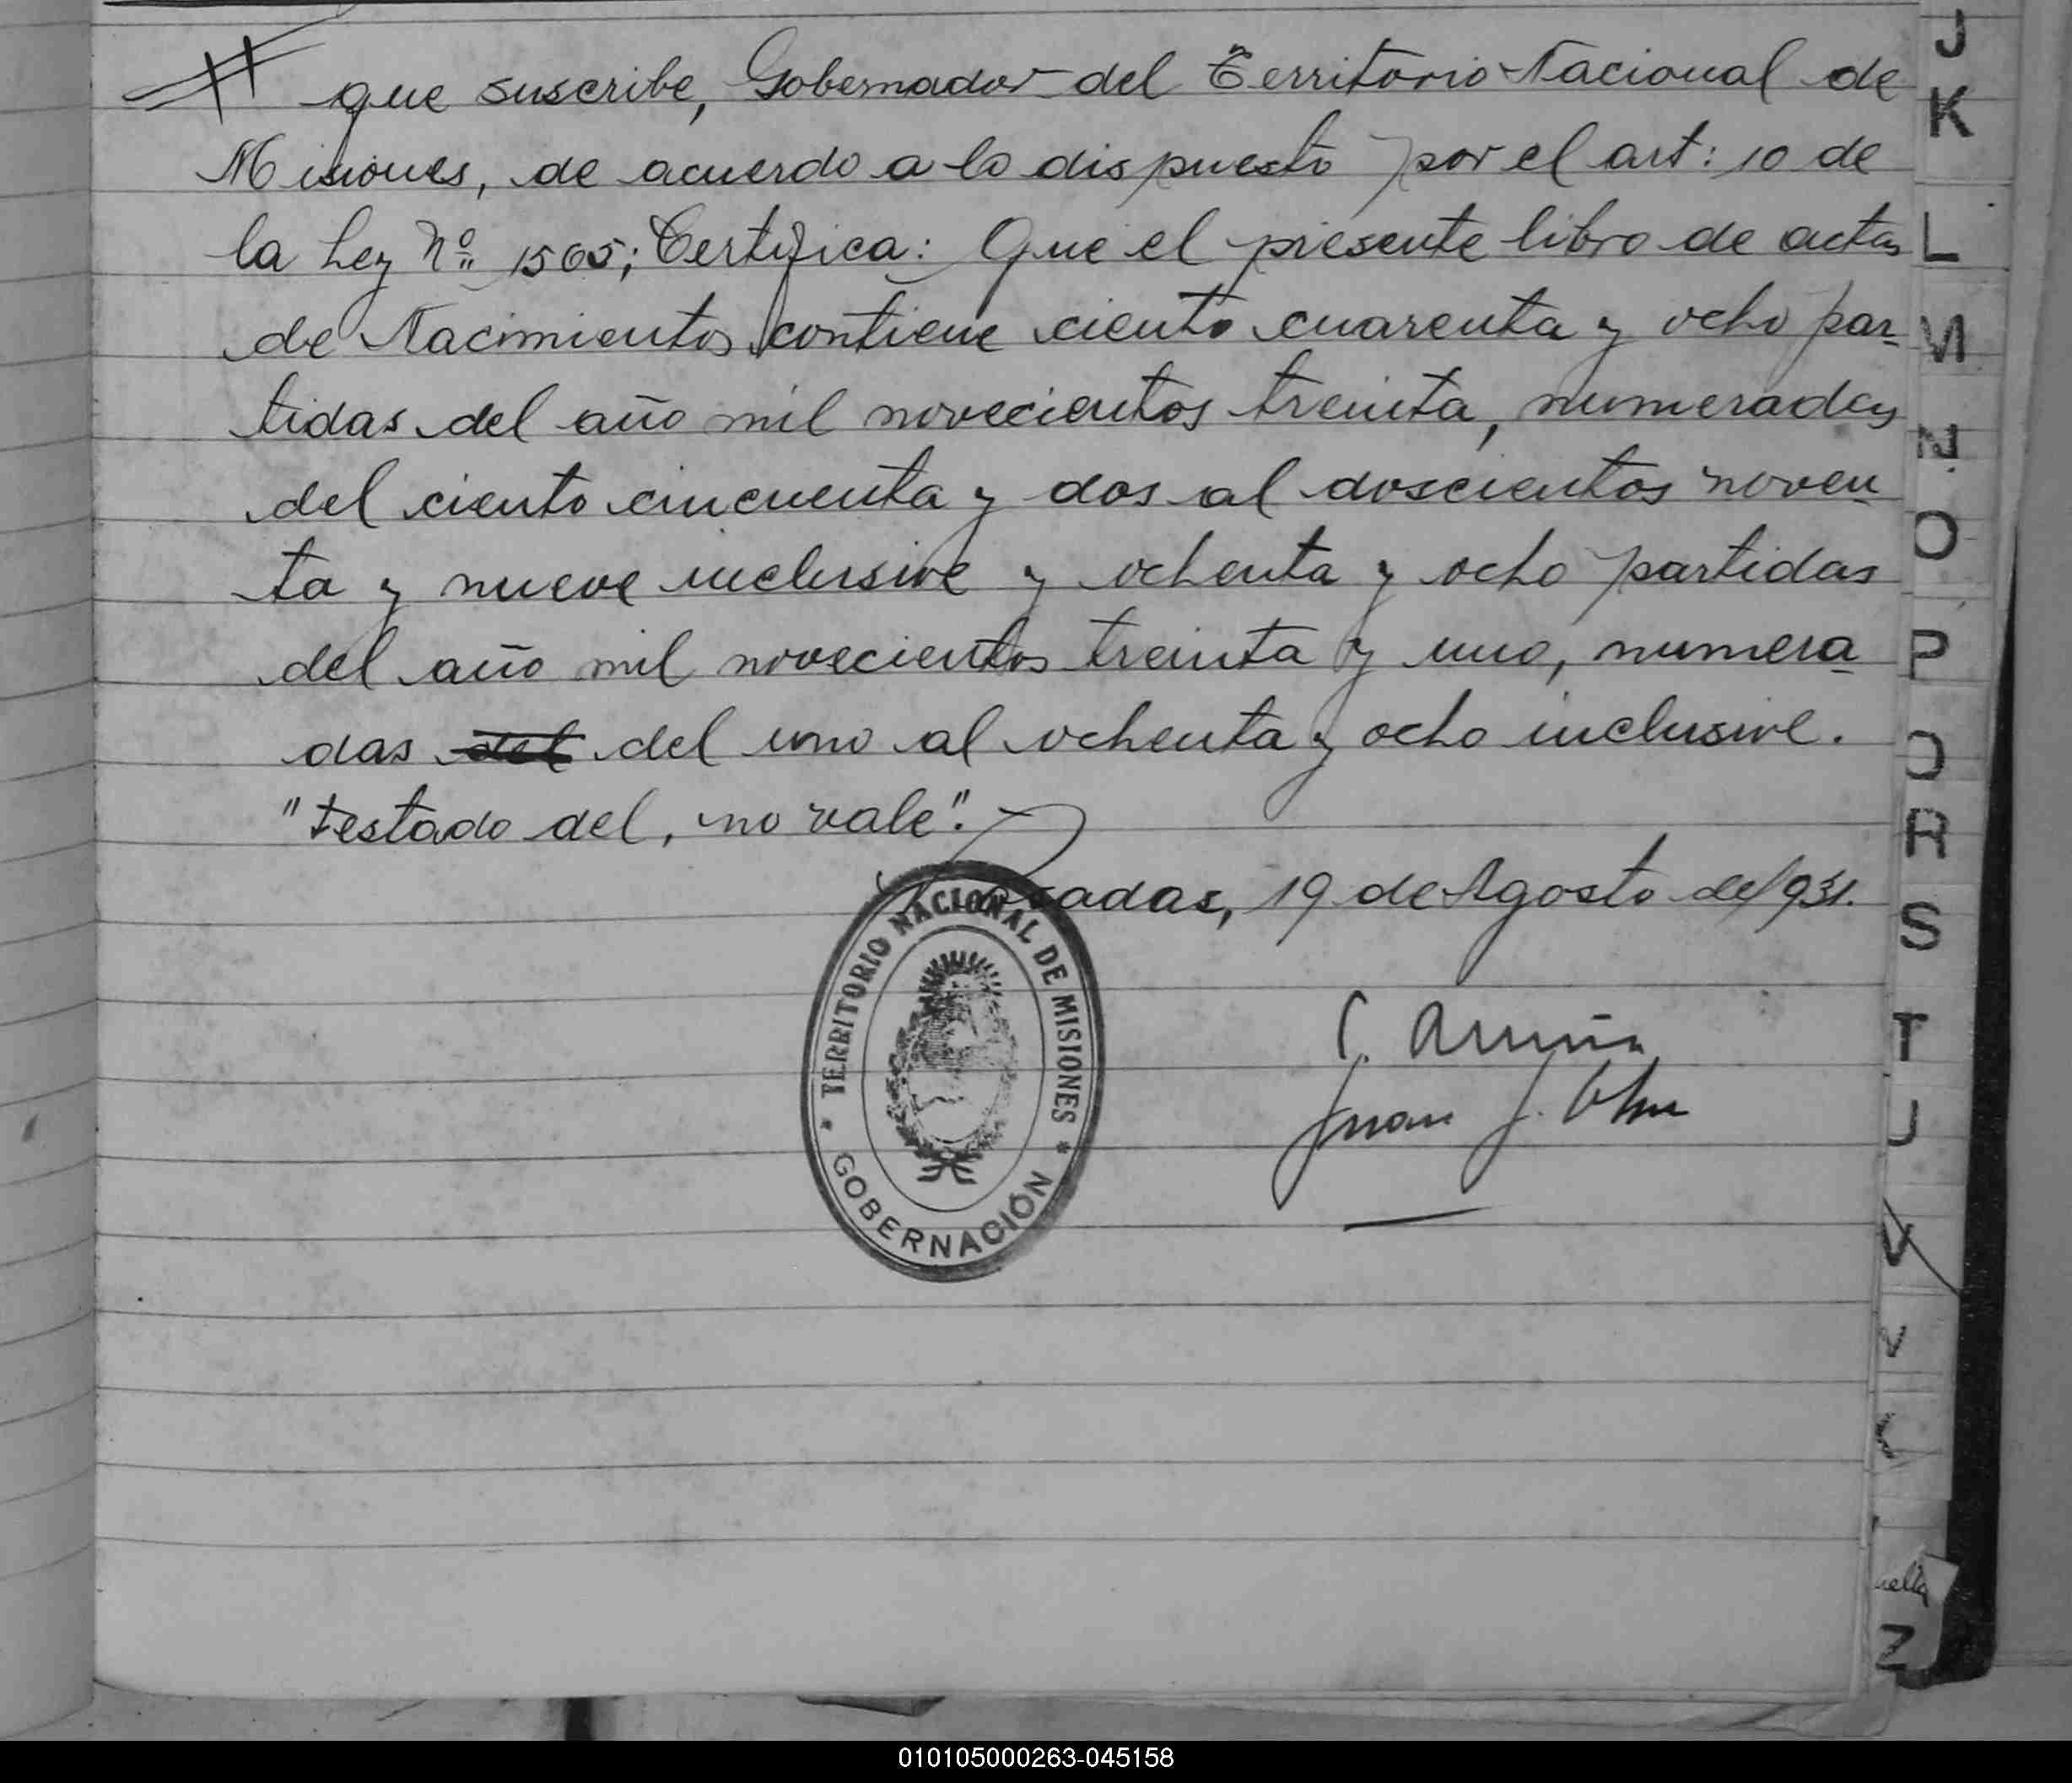 que suscribe, Gobernador del Territorio Nacional de
Misiones, de acuerdo a lo dispuesto por el art: 10 de
la Ley Nº 1565; Certifica: Que el presente libro de actas
de Nacimientos contiene ciento cuarenta y ocho par-
tidas del año mil novecientos treinta, numeradas
del ciento cincuenta y dos al doscientos noven-
ta y nueve inclusive y ochenta y ocho partidas
del año mil novecientos treinta y uno, numera-
das del del uno al ochenta y ocho inclusive.
"Testado del, no vale".
Posadas, 19 de Agosto de 1931.
TERRITORIO NACIONAL DE MISIONES
GOBERNACIÓN
Juan J.
J
K
L
M
N
O
P
Q
R
S
T
U
V
Z
010105000263-045158